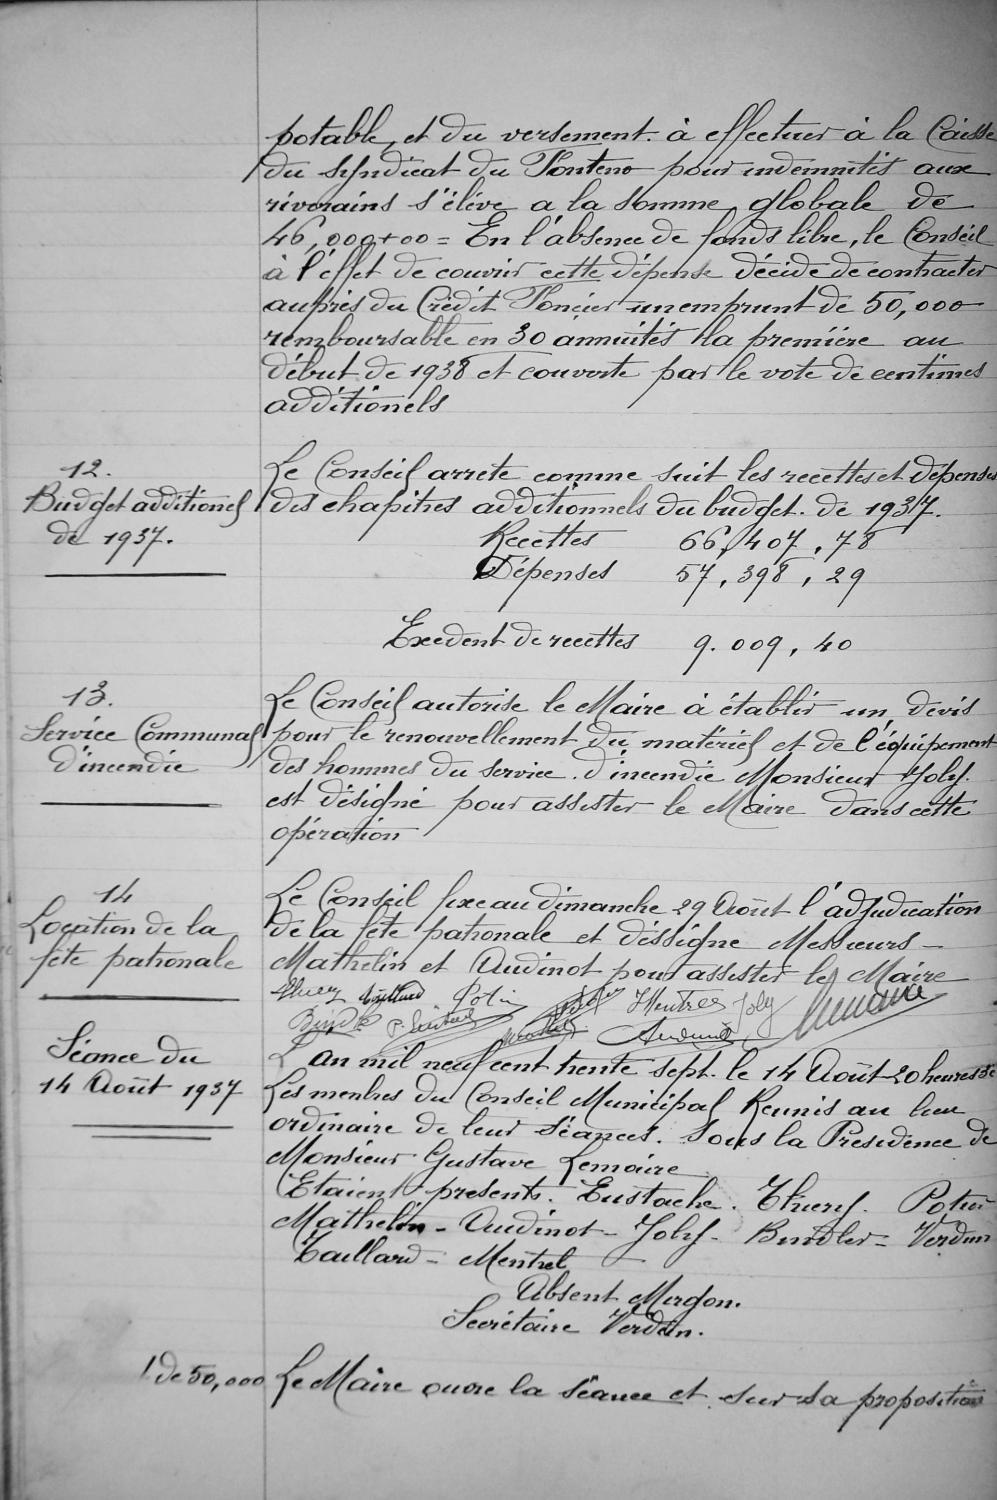 potable, et du versement à effectuer à la Caisse
du syndicat du Fonteno pour indemnités aux
riverains s'élève a la somme globale de
46,000+00 = En l'absence de fonds libre, le Conseil
à l'effet de couvrir cette dépense décide de contracter
auprès du Crédit Foncier un emprunt de 50,000
remboursable en 30 annuités la première au
début de 1938 et couverte par le vote de centimes
additionels
12.
Budget additionel
de 1937.
Le Conseil arrete comme suit les recettes et dépenses
des chapitres additionnels du budget. de 1937.
Recettes 66,407,78
Dépenses 57,398,29
Exedent de recettes 9.009,40
13.
Service Communal
d'incendie
Le Conseil autorise le Maire à établir un devis
pour le renouvellement du matériel et de l'équipement
des hommes du service d'incendie Monsieur Joly.
est désigné pour assister le Maire dans cette
opération
14
Location de la
fête patronale
Le Conseil fixe au dimanche 29 Août l'adjudication
de la fête patronale et déssigne Messieurs -
Mathelin et Audinot pour assister le Maire
Thuery Taillard Potin Mentrel Joly Lemaire
Audinot
Séance du
14 Août 1937
L'an mil neuf cent trente sept. le 14 Août 20 heures 30
Les membres du Conseil Municipal Reunis au lieu
ordinaire de leur séances. Sous la Présidence de
Monsieur Gustave Lemaire
Etaient presents. Eustache. Thuery. Potin
Mathelin - Audinot - Joly - Bindler = Verdun
Taillard - Mentrel
Absent Murgon.
Secrétaire Verdun.
de 50,000
Le Maire ouvre la séance et sur sa proposition